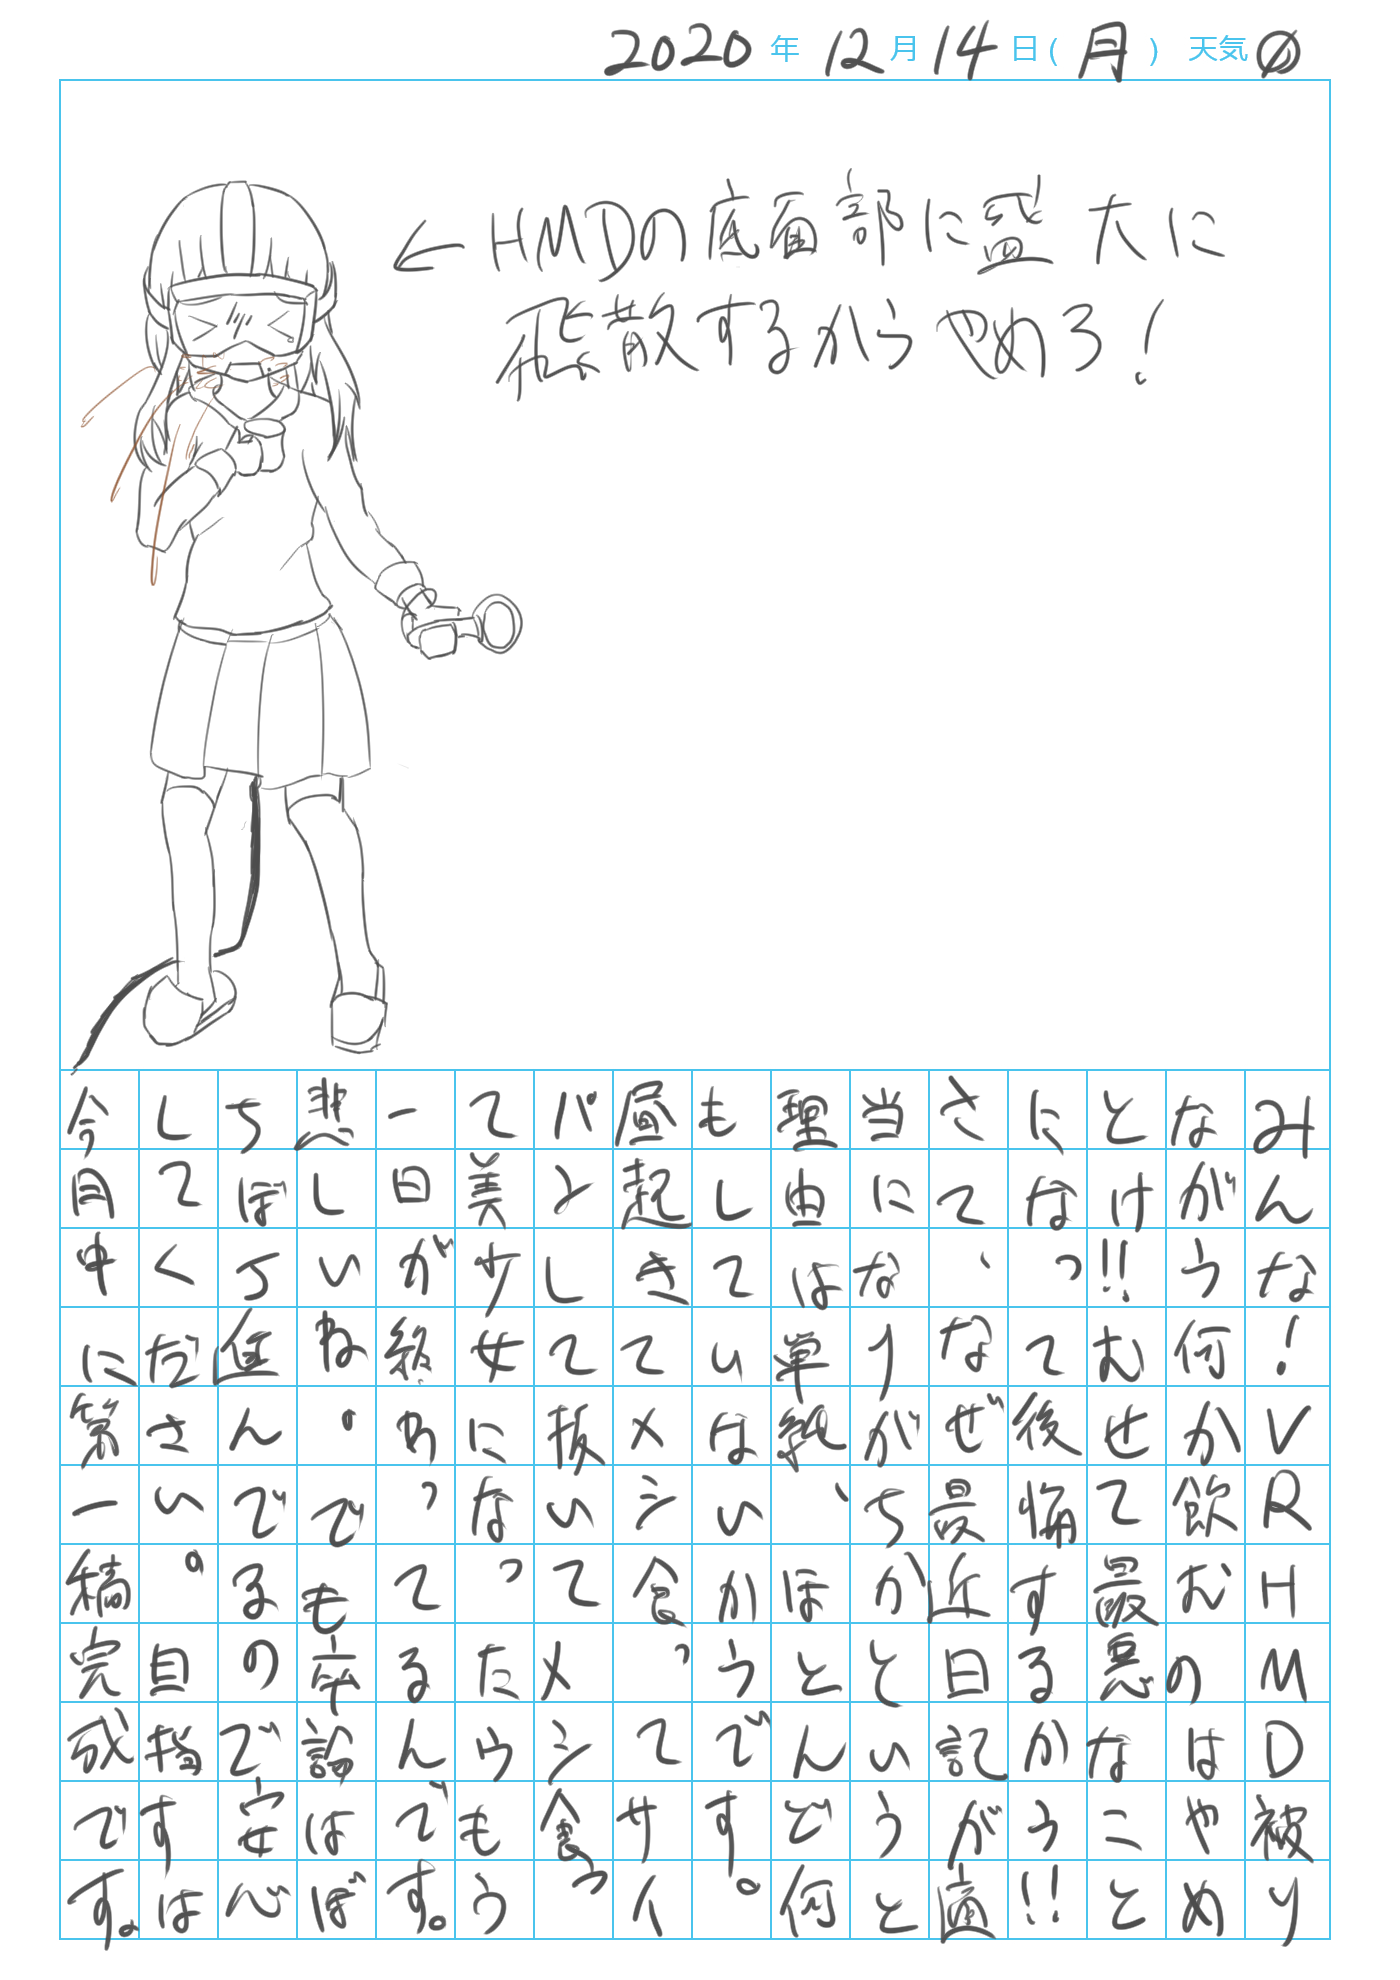 2020年 12月 14日(月) 天気∅
←HMDの底面部に盛大に
飛散するからやめろ！
みんな！VRHMD被り
ながら何か飲むのはやめ
とけ!!むせて最悪なこと
になって後悔するから!!
さて、なぜ最近日記が適
当になりがちかというと
理由は単純、ほとんど何
もしていないからです。
昼起きてメシ食ってサイ
パンして抜いてメシ食っ
て美少女になったらもう
一日が終わってるんです。
悲しいね。でも卒論はぼ
ちぼち進んでるので安心
してください。目指すは
今月中に第一稿完成です。